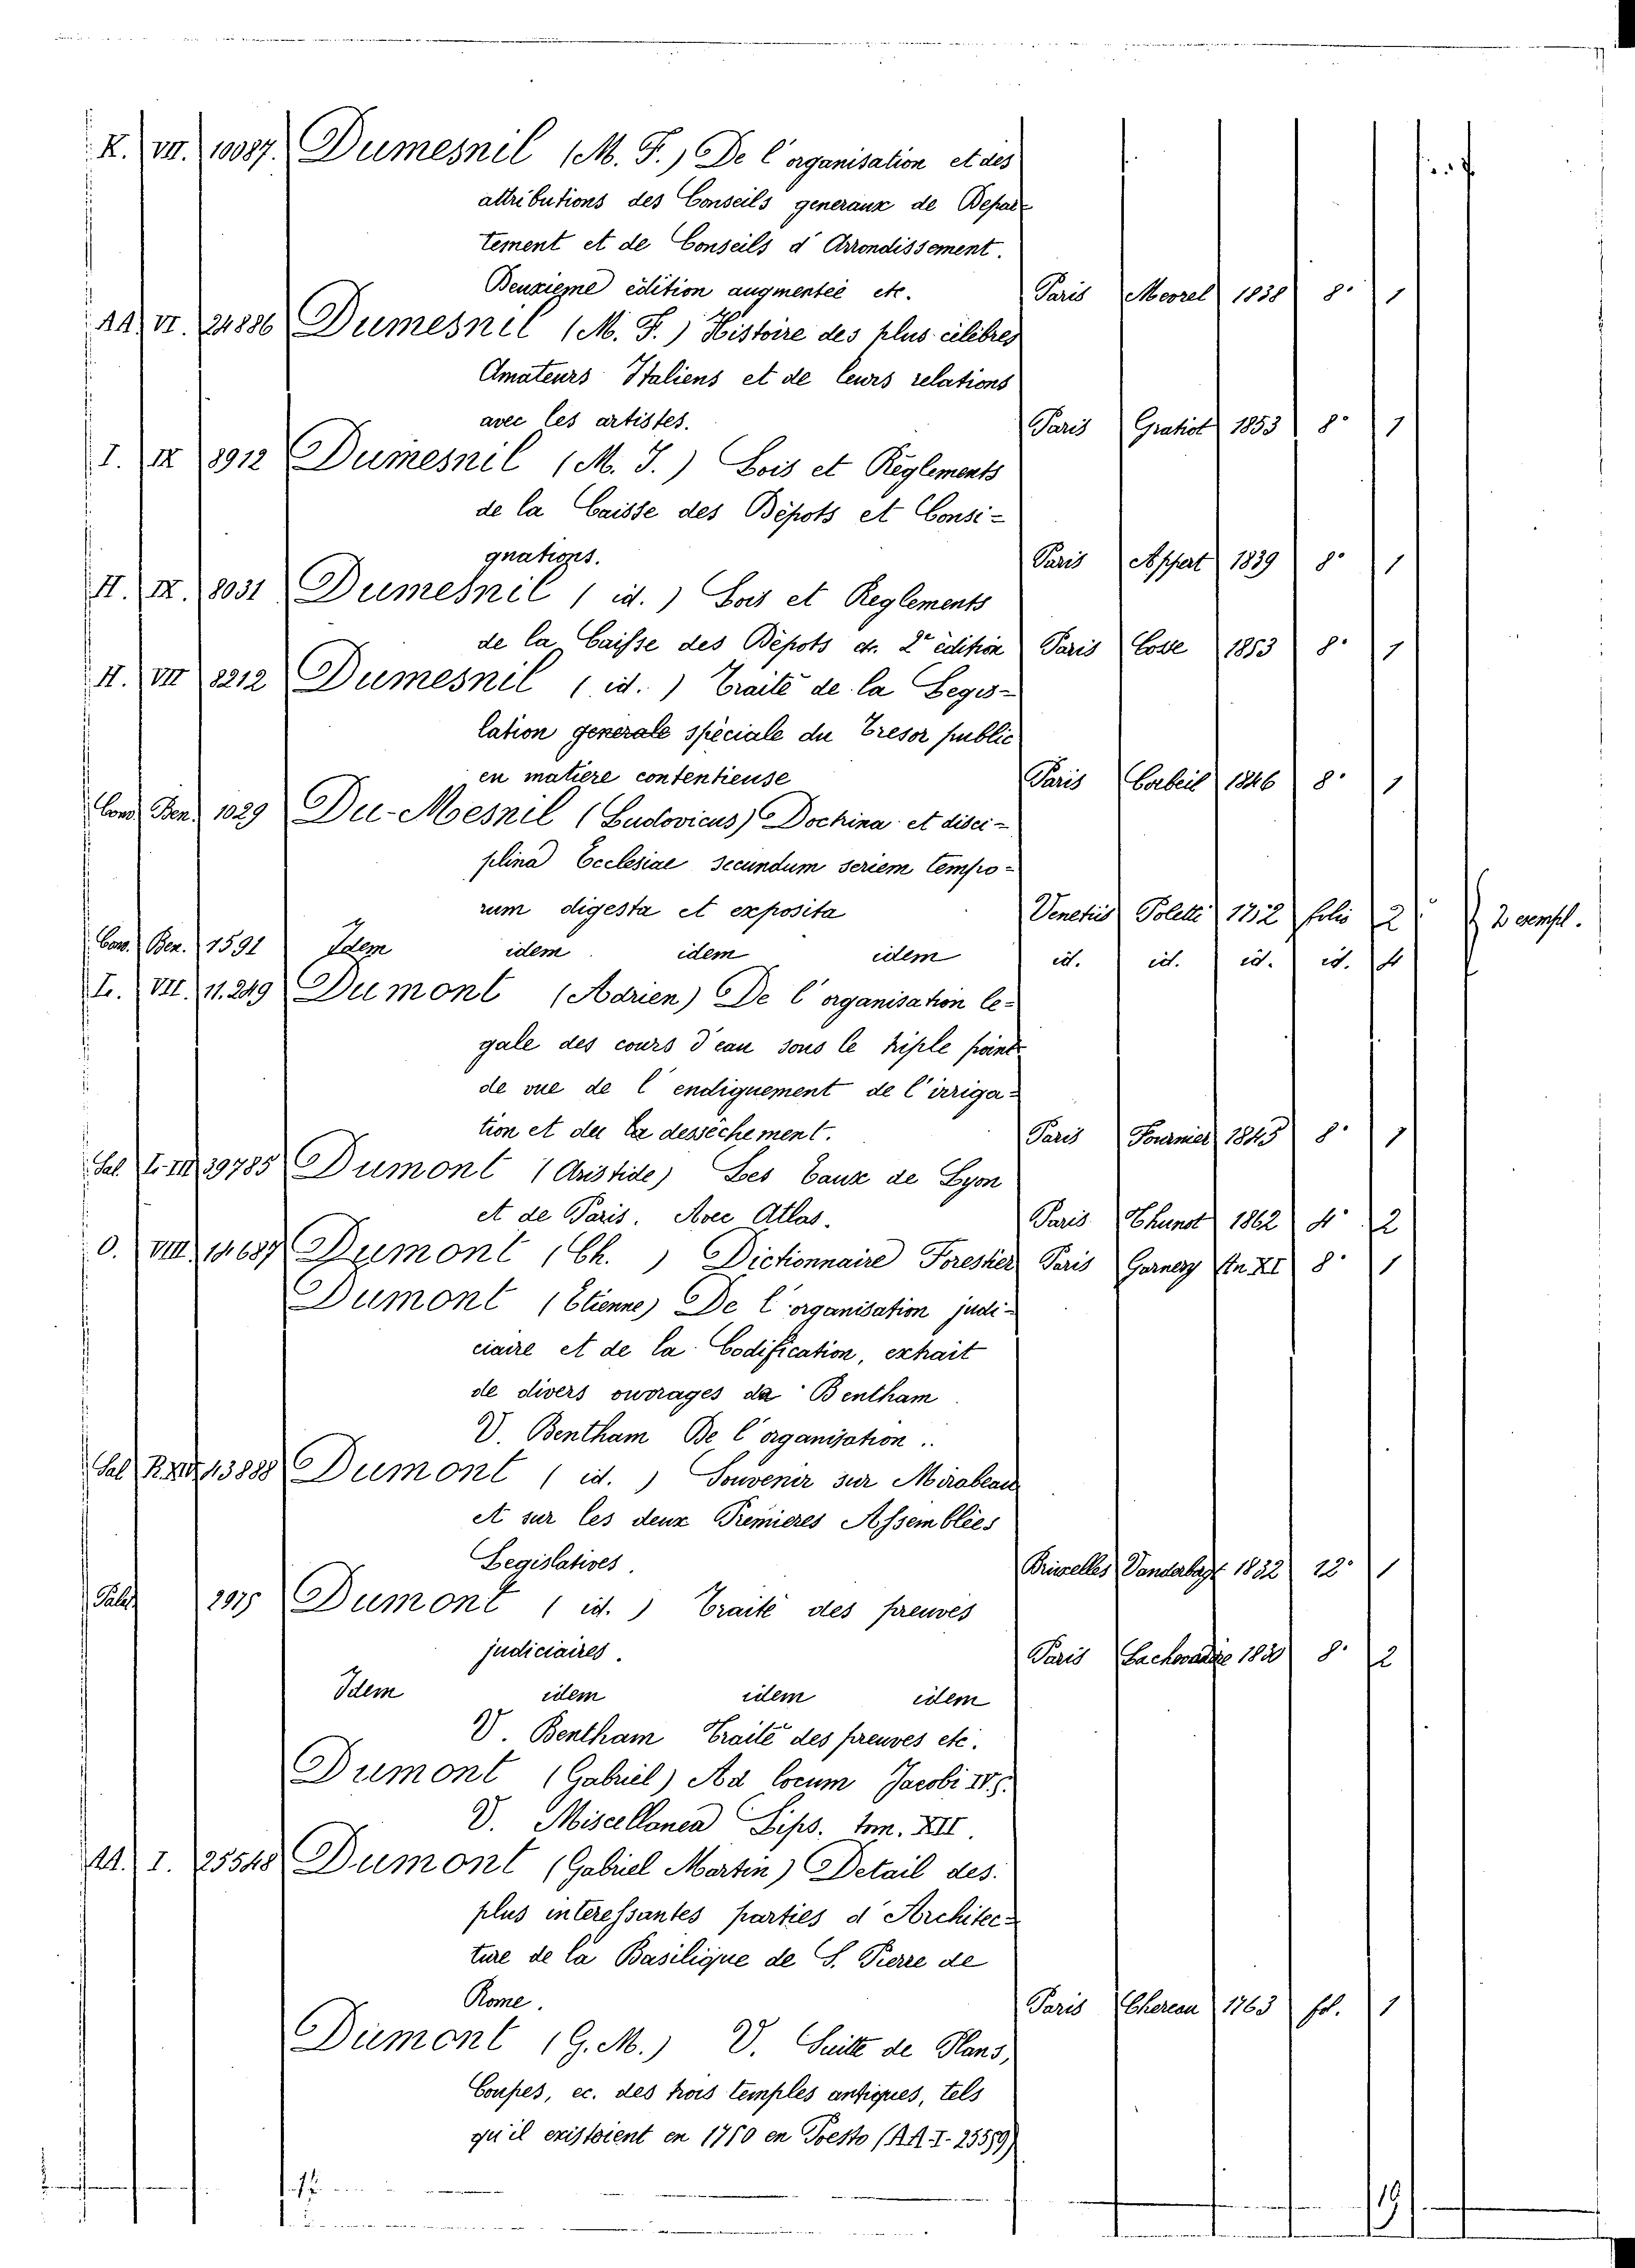 K. VII. 10087. Dumesnil (M. F.) De l'organisation et des
attributions des Conseils generaux de Depar-
tement et de Conseils d'Arrondissement.
Deuxieme édition augmenteé etc. Paris Moorel 1838 8° 1
AA. VI. 24886 Dumesnil (M. F.) Histoire des plus célèbres
Amateurs Italiens et de leurs relations
avec les artistes. Paris Gratiot 1853 8° 1
I. IX 8912 Dumesnil (M. J.) Lois et Réglements
de la Caisse des Dépots et Consi-
gnations. Paris Appert 1839 8° 1
H. IX. 8031 Dumesnil (id.) Lois et Reglements
de la Caisse des Dépots etc. 2e édition Paris Cosse 1853 8° 1
H. VII 8212 Dumesnil (id.) Traité de la Legis-
lation generale spéciale du Tresor public
en matiere contentieuse Paris Corbeil 1846 8° 1
Cons. Ben. 1029 Du-Mesnil (Ludovicus) Doctrina et disci-
plina Ecclesiae secundum seriem tempo-
rum digesta et exposita Venetiis Poletti 1752 folio 2 } 2 esempl.
Cons. Ben. 1591 Idem idem idem idem id. id. id. id. 4
L. VII. 11.249 Dumont (Adrien) De l'organisation le-
gale des cours d'eau sous le triple point
de vue de l'endiguement de l'irriga-
tion et du dessèchement. Paris Fournier 1845 8° 1
Sal L. III 39785 Dumont (Aristide) Les Eaux de Lyon
et de Paris. Avec Atlas. Paris Thunot 1862 4° 2
O. VIII 18687 Dumont (Ch.) Dictionnaire Forestier Paris Garnery An XI 8° 1
Dumont (Etienne) De l'organisation judi-
ciaire et de la Codification, extrait
de divers ouvrages da Bentham
V. Bentham De l'organisation..
Sal 43888 Dumont (id.) Souvenir sur Mirabeau
et sur les deux Premieres Assemblées
Legislatives. Bruxelles 1832 12° 1
Palat. 2975 Dumont (id.) Traité des preuves
judiciaires. Paris Lachevardie 1830 8° 2
Idem idem idem idem
V. Bentham Traité des preuves etc.
Dumont (Gabriel) Ad locum Jacobi IV. 5.
V. Miscellanea Lips. tom. XII.
AA. I. 25548 Dumont (Gabriel Martin) Detail des
plus interessantes parties d'Architec-
ture de la Basilique de S. Pierre de
Rome. Paris Chereau 1763 fol. 1
Dumont (G. M.) V. Suitte de Plans,
Coupes, ec. des trois temples antiques, tels
qu'il existoient en 1750 en Poesto (AA-I-25559)
17 19